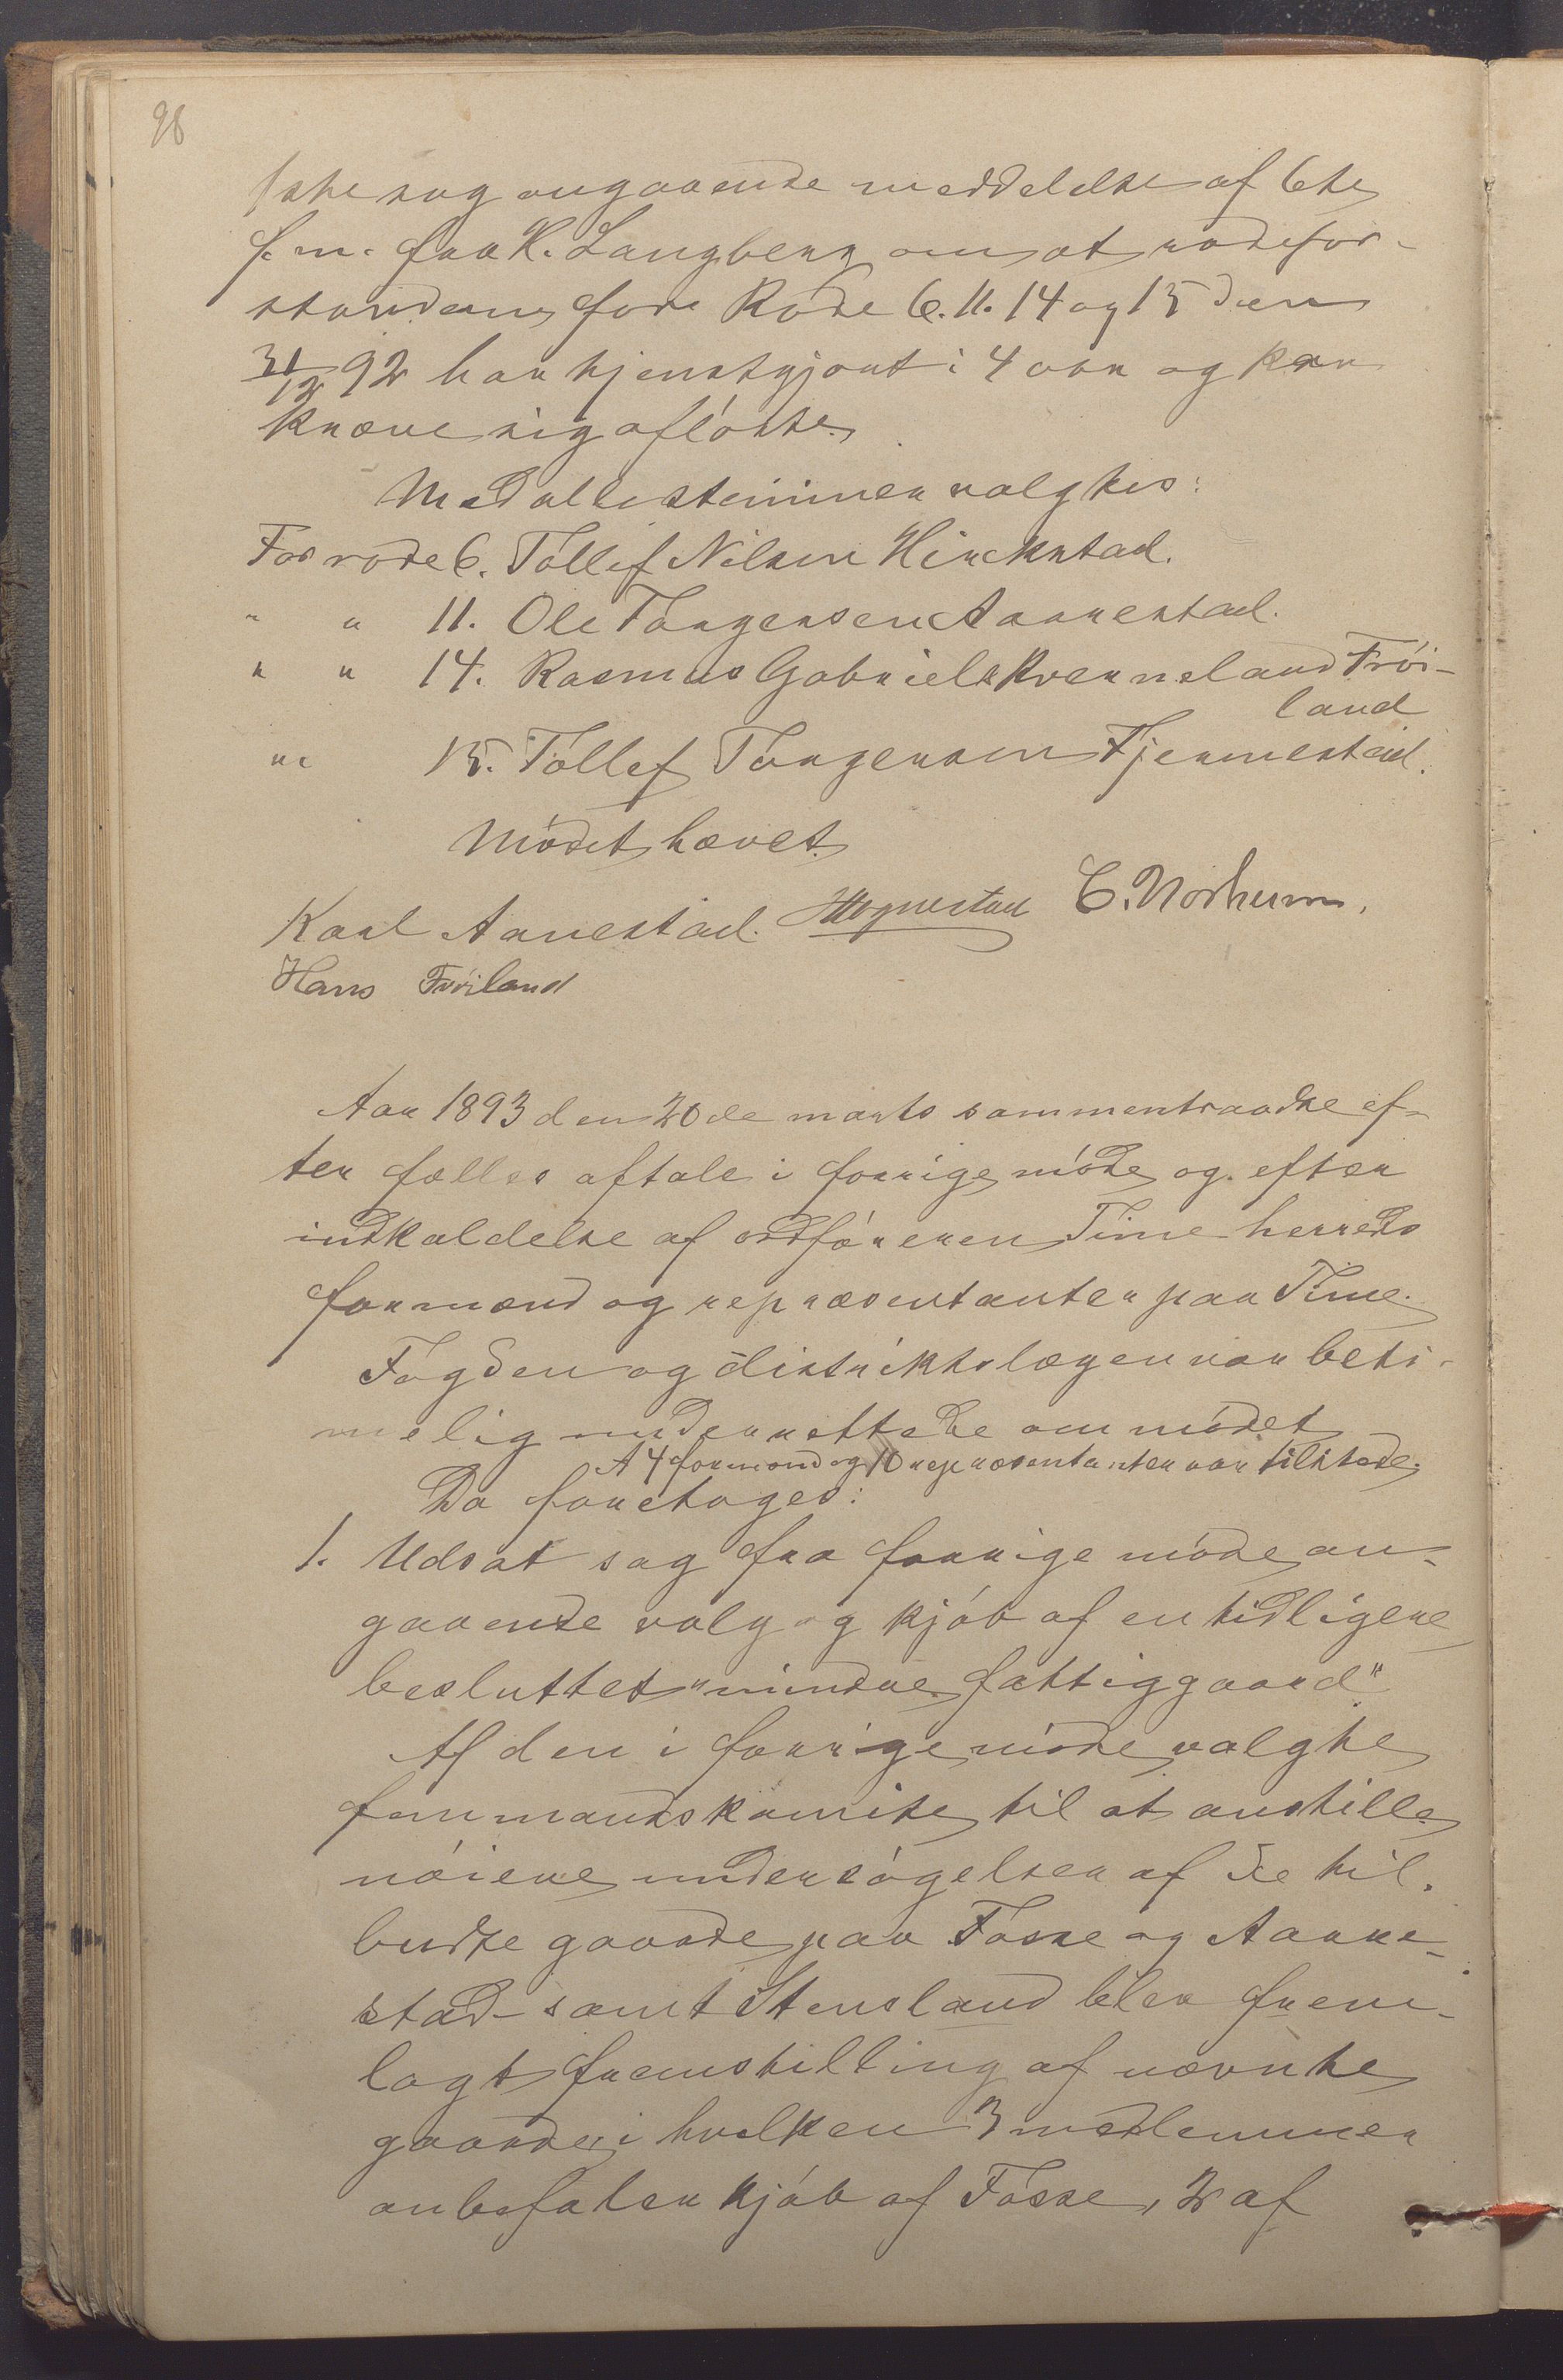 98
1ste sag angaaende meddelelse af 6te
f. m. fra K. Langberg om at rodefor-
standerne for Rode 6. 11. 14 og 15 den
31/12 92 har tjenstgjort i 4 aar og kan
kræve sig afløste.
Med alle stemmer valgtes:
For rode 6. Tollef Nilsen Hinckstad.
" " 11. Ole Torgersen Aanestad.
" " 14. Rasmus Gabriels Kverneland Frøi-
land
" " 15. Tollef Torgersen Fjermestad.
Mødet hævet.
Karl Aanestad. Hognestad C. Norheim.
Hans Frøiland
Aar 1893 den 20de marts sammentraadte ef-
ter fælles aftale i forrige møde og efter
indkaldelse af ordføreren Time herreds
formænd og repræsentanter paa Time.
Fogden og distriktslægen var beti-
melig underrettede om mødet
At 4 formænd og 10 repræsentanter var tilstede.
Da foretoges:
1. Udsat sag fra forrige møde an-
gaaende valg og kjøb af en tidligere
besluttet "mindre fattiggaard"
Af den i forrige møde valgte
femmandskomite til at anstille
nøiere undersøgelser af de til-
budte gaarde paa Fosse og Aane-
stad samt Stensland blev frem-
lagt fremstilling af nævnte
gaarde i hvilken 3 medlemmer
anbefaler kjøb af Fosse, 2 af